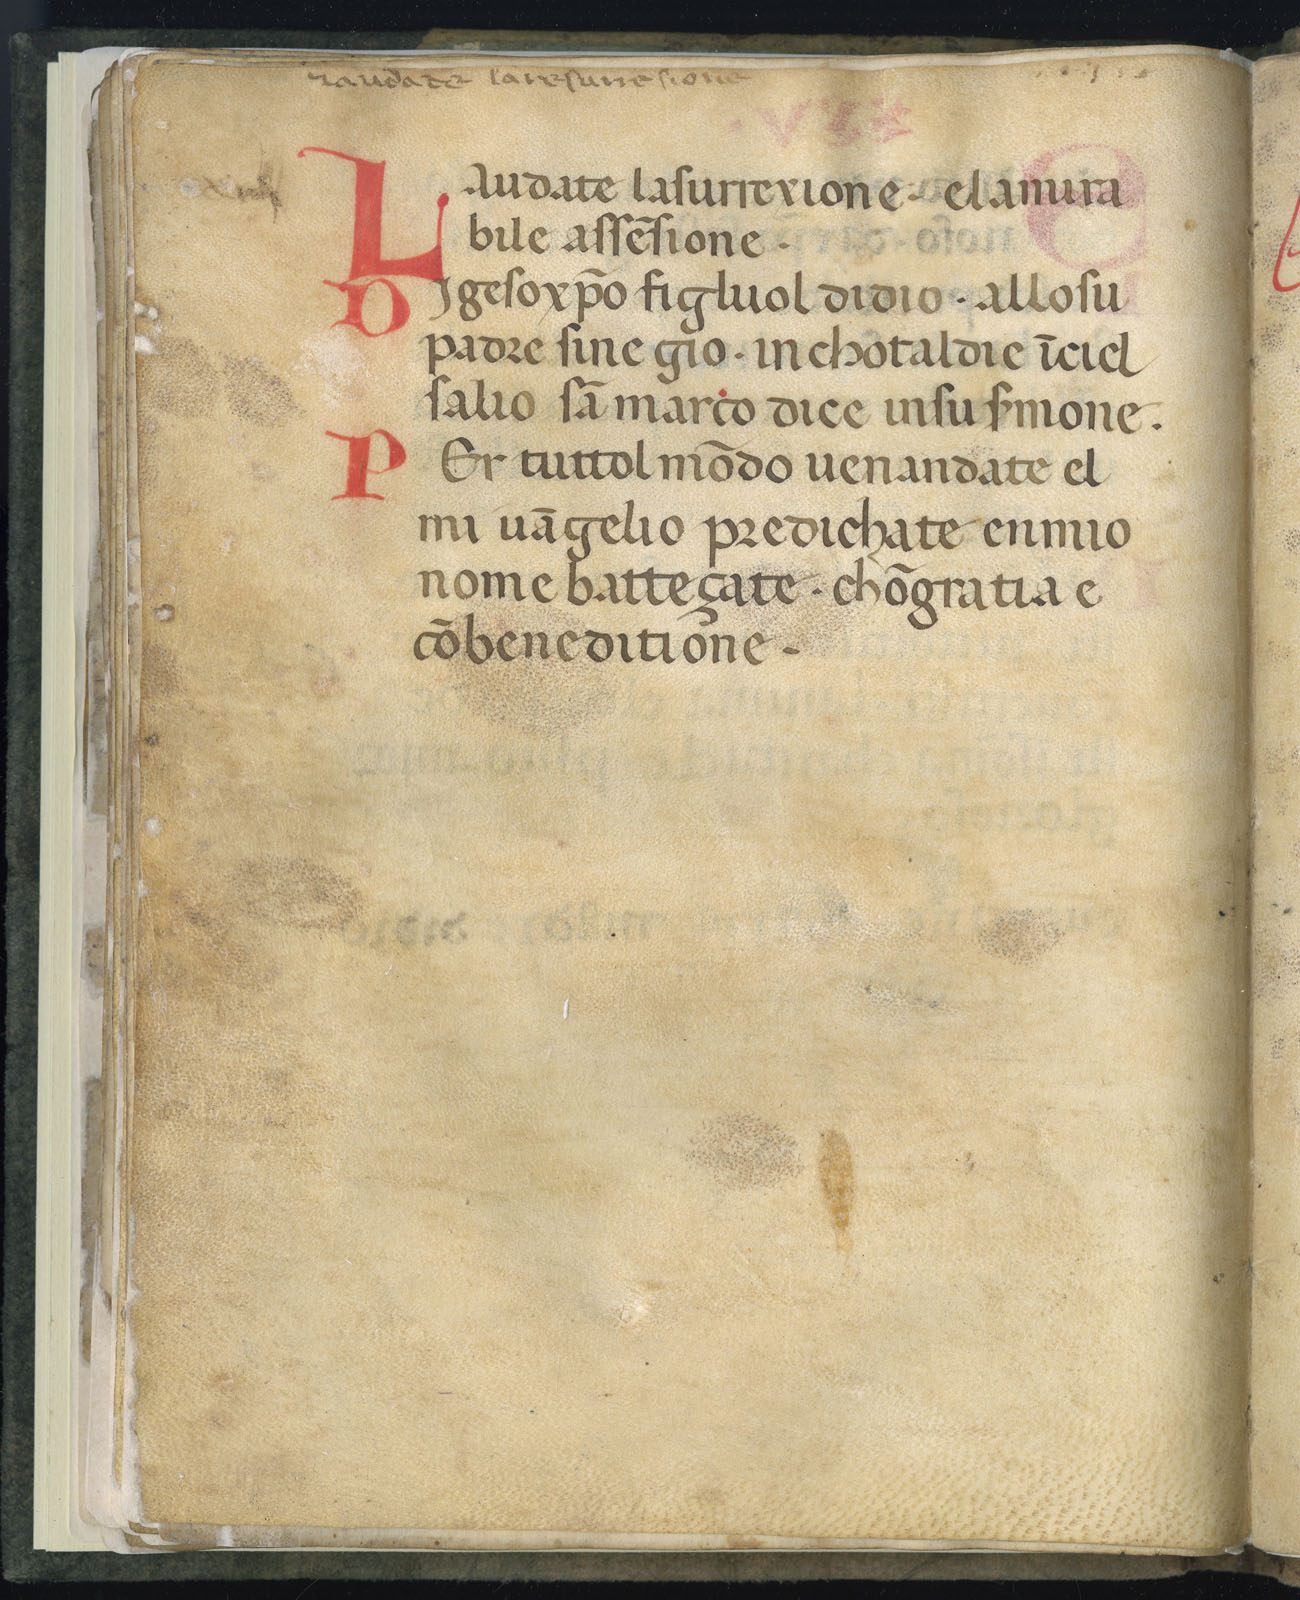 raudate laresuresione
Laudate lasurrexione · elamira
bile assēsione ·
Di gesoxp̄o figluol didio · allosu
padre sine gio · inchotaldie īciel
salio sā marco dice insusermone ·
PEr tuttol mōdo uenandate el
mi uāgelio predichate enmio
nome batteçate · chōgratia e
cōbeneditione ·